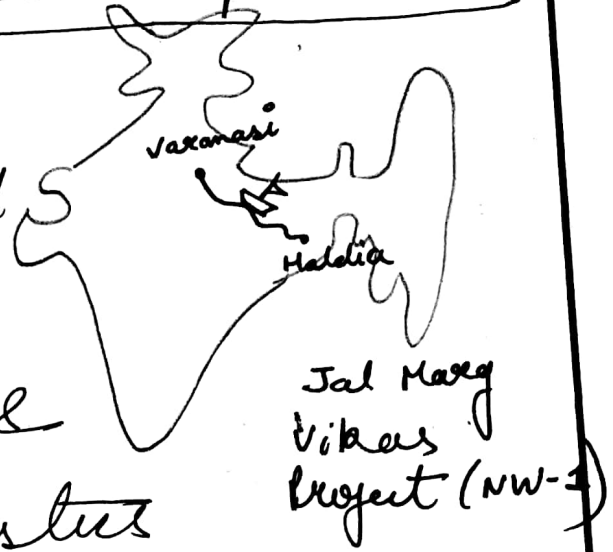 Varanasi
Haldia
Jal Marg
Vikas
Project (NW-1)